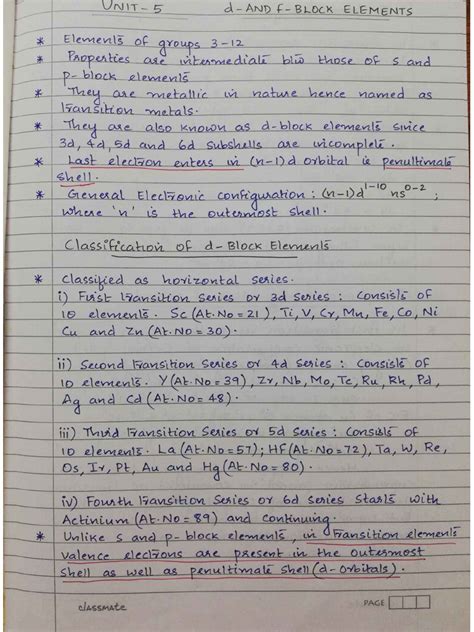 UNIT-5 d-AND f-BLOCK ELEMENTS
* Elements of groups 3-12
* Properties are intermediate b/w those of s and
p-block elements
* They are metallic in nature hence named as
transition metals.
* They are also known as d-block elements since
3d, 4d, 5d and 6d subshells are incomplete.
* Last electron enters in (n-1)d orbital ie penultimate
shell.
* General Electronic configuration : (n-1)d¹⁻¹⁰ ns⁰⁻² ;
where 'n' is the outermost shell.
Classification of d-Block Elements
* Classified as horizontal series.
i) First transition series or 3d series : consists of
10 elements. Sc (At.No = 21), Ti, V, Cr, Mn, Fe, Co, Ni
Cu and Zn (At.No = 30).
ii) Second transition series or 4d series : consists of
10 elements. Y (At.No = 39), Zr, Nb, Mo, Tc, Ru, Rh, Pd,
Ag and Cd (At.No = 48).
iii) Third transition series or 5d series : consists of
10 elements. La (At.No = 57); Hf (At.No = 72), Ta, W, Re,
Os, Ir, Pt, Au and Hg (At.No = 80).
iv) Fourth transition series or 6d series starts with
Actinium (At.No = 89) and continuing.
* Unlike s and p-block elements, in transition elements
valence electrons are present in the outermost
shell as well as penultimate shell (d-orbitals).
classmate PAGE